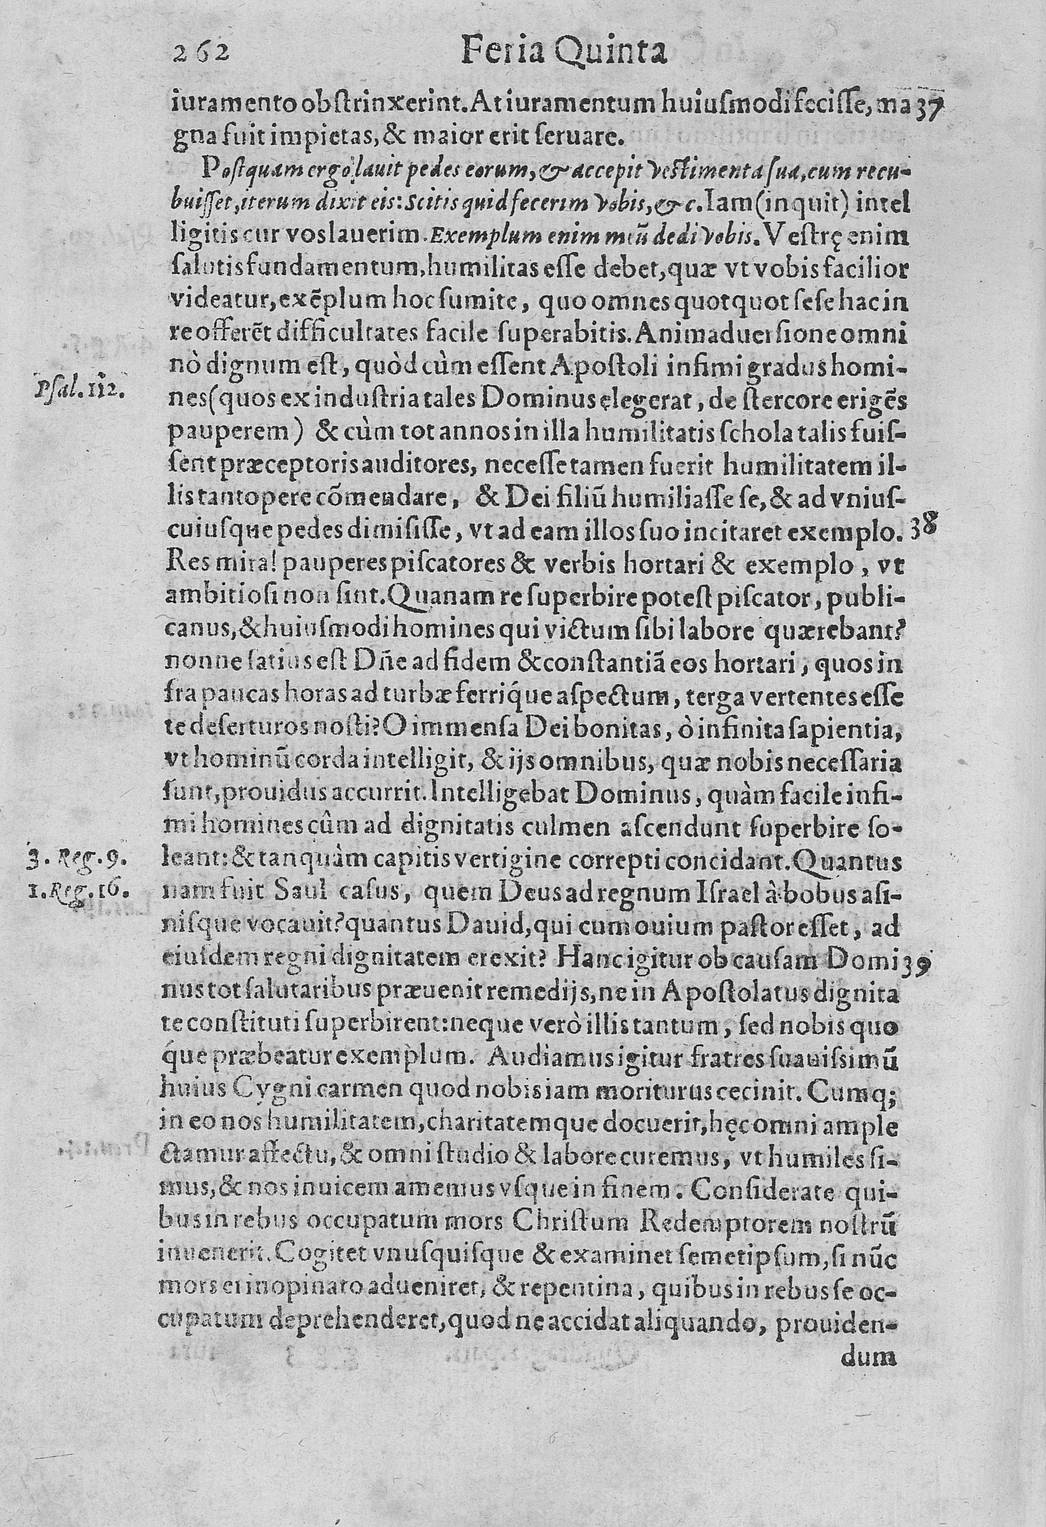 262 Feria Quinta
iuramento obstrinxerint. At iuramentum huiusmodi fecisse, ma 37
gna fuit impietas, & maior erit seruare.
Postquam ergo lauit pedes eorum, & accepit vestimenta sua, cum recu-
buisset, iterum dixit eis: Scitis quid fecerim vobis, & c. Iam (inquit) intel
ligitis cur vos lauerim. Exemplum enim meũ dedi vobis. Vestrę enim
salutis fundamentum, humilitas esse debet, quæ vt vobis facilior
videatur, exẽplum hoc sumite, quo omnes quotquot sese hac in
re offerẽt difficultates facile superabitis. Animaduersione omni
nò dignum est, quòd cùm essent Apostoli infimi gradus homi-
Psal. 112.
nes (quos ex industria tales Dominus elegerat, de stercore erigẽs
pauperem) & cùm tot annos in illa humilitatis schola talis fuis-
sent præceptoris auditores, necesse tamen fuerit humilitatem il-
lis tantopere cõmendare, & Dei filiũ humiliasse se, & ad vnius-
cuiusque pedes dimisisse, vt ad eam illos suo incitaret exemplo. 38
Res mira! pauperes piscatores & verbis hortari & exemplo, vt
ambitiosi non sint. Quanam re superbire potest piscator, publi-
canus, & huiusmodi homines qui victum sibi labore quærebant?
nonne satius est Dñe ad fidem & constantiã eos hortari, quos in
fra paucas horas ad turbæ ferriq́ue aspectum, terga vertentes esse
te deserturos nosti? O immensa Dei bonitas, ò infinita sapientia,
vt hominũ corda intelligit, & ijs omnibus, quæ nobis necessaria
sunt, prouidus accurrit. Intelligebat Dominus, quàm facile infi-
mi homines cùm ad dignitatis culmen ascendunt superbire so-
3. Reg. 9.
leant: & tanquàm capitis vertigine correpti concidant. Quantus
1. Reg. 16.
nam fuit Saul casus, quem Deus ad regnum Israel à bobus asi-
nisque vocauit? quantus Dauid, qui cum ouium pastor esset, ad
eiusdem regni dignitatem erexit? Hanc igitur ob causam Domi 39
nus tot salutaribus præuenit remedijs, ne in Apostolatus dignita
te constituti superbirent: neque verò illis tantum, sed nobis quo
q́ue præbeatur exemplum. Audiamus igitur fratres suauissimũ
huius Cygni carmen quod nobis iam moriturus cecinit. Cumq;
in eo nos humilitatem, charitatemque docuerit, hęc omni ample
ctamur affectu, & omni studio & labore curemus, vt humiles si-
mus, & nos inuicem amemus vsque in finem. Considerate qui-
bus in rebus occupatum mors Christum Redemptorem nostrũ
inuenerit. Cogitet vnusquisque & examinet semetipsum, si nũc
mors ei inopinato adueniret, & repentina, quibus in rebus se oc-
cupatum deprehenderet, quod ne accidat aliquando, prouiden-
dum